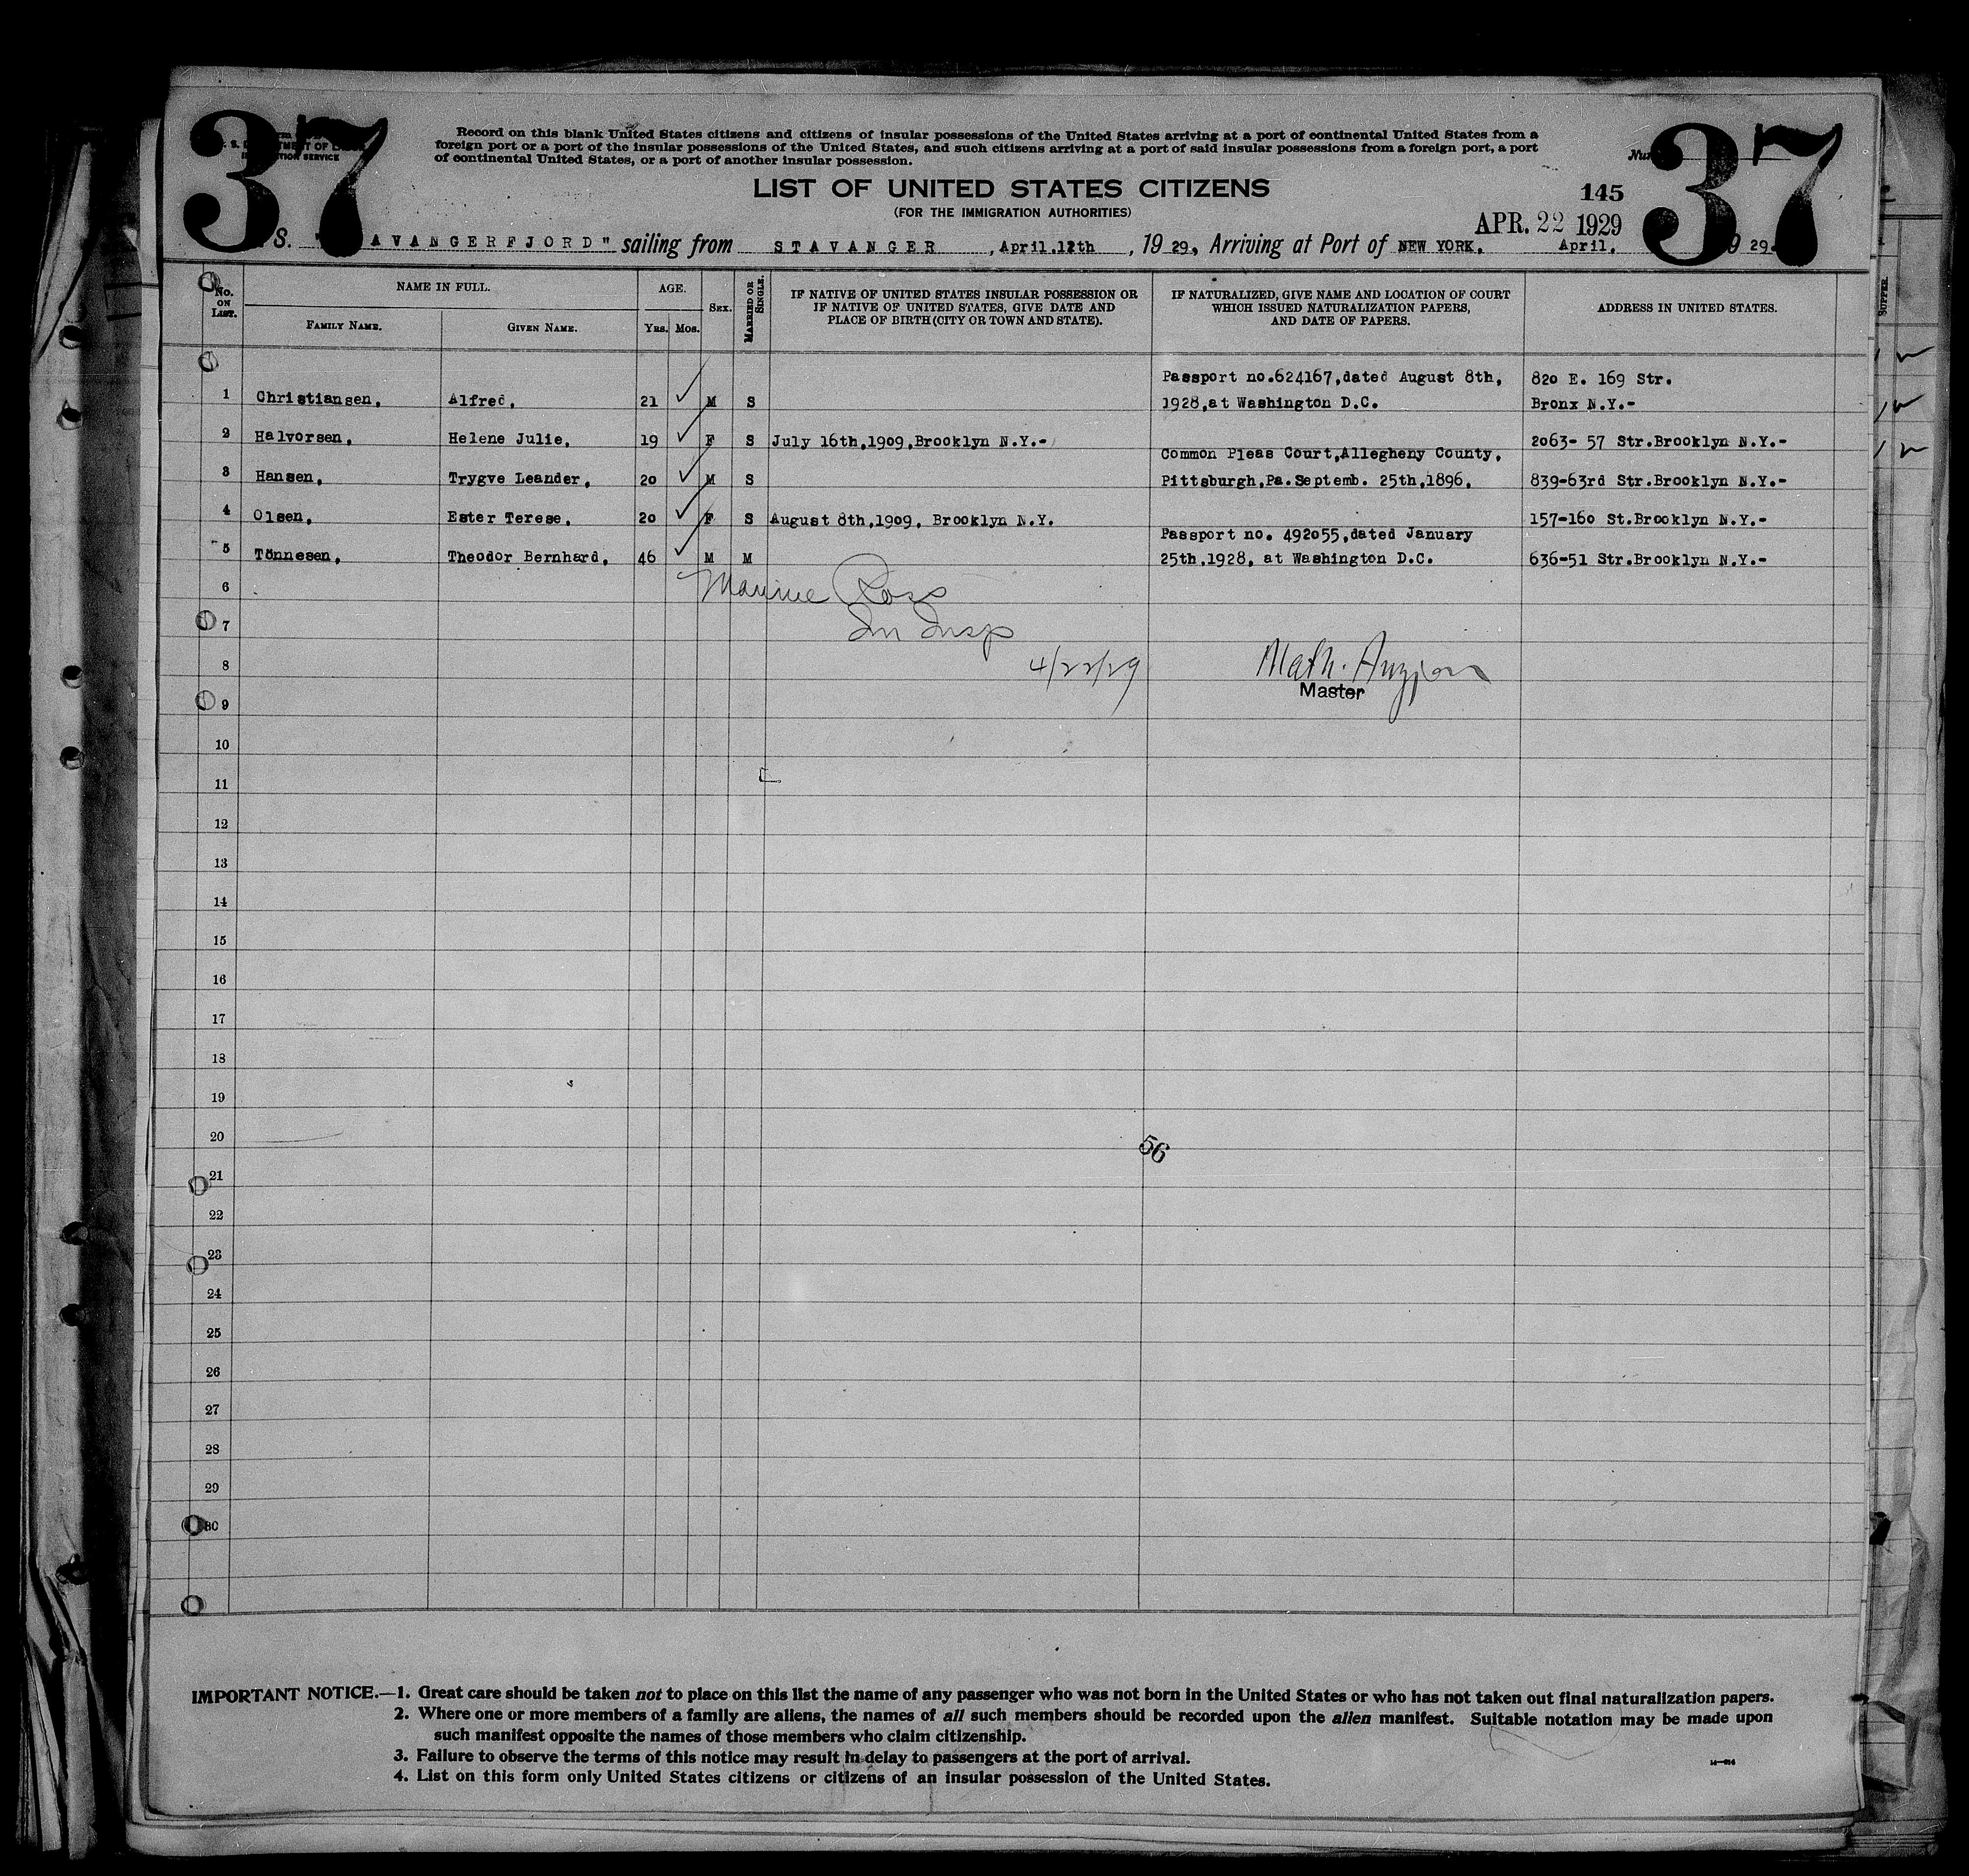 37
37
Record on this blank United States citizens and citizens of insular possessions of the United States arriving at a port of continental United States from a
foreign port or a port of the insular possessions of the United States, and such citizens arriving at a port of said insular possessions from a foreign port, a port
of continental United States, or a port of another insular possession.
LIST OF UNITED STATES CITIZENS
(FOR THE IMMIGRATION AUTHORITIES)
145
APR. 22 1929
S. AVANGERFJORD" sailing from STAVANGER, April.12th, 19 29, Arriving at Port of NEW YORK. April. 29.
No. ON LIST.
NAME IN FULL.
FAMILY NAME.
GIVEN NAME.
AGE.
Yrs. Mos.
SEX.
MARRIED OR SINGLE.
IF NATIVE OF UNITED STATES INSULAR POSSESSION OR
IF NATIVE OF UNITED STATES, GIVE DATE AND
PLACE OF BIRTH (CITY OR TOWN AND STATE).
IF NATURALIZED, GIVE NAME AND LOCATION OF COURT
WHICH ISSUED NATURALIZATION PAPERS,
AND DATE OF PAPERS.
ADDRESS IN UNITED STATES.
SUPPER.
Passport no.624167,dated August 8th, 820 E. 169 Str.
1 Christiansen, Alfred, 21 ✓ M S 1928,at Washington D.C. Bronx N.Y.-
2 Halvorsen, Helene Julie, 19 ✓ F S July 16th,1909,Brooklyn N.Y.- 2063- 57 Str.Brooklyn N.Y.-
Common Pleas Court,Allegheny County,
3 Hansen, Trygve Leander, 20 ✓ M S Pittsburgh,Pa.Septemb. 25th,1896, 839-63rd Str.Brooklyn N.Y.-
4 Olsen, Ester Terese, 20 ✓ F S August 8th,1909, Brooklyn N.Y. 157-160 St.Brooklyn N.Y.-
Passport no. 492055,dated January
5 Tönnesen, Theodor Bernhard, 46 ✓ M M 25th,1928, at Washington D.C. 636-51 Str.Brooklyn N.Y.-
6 Ross
7 Im Insp
8 4/22/29 Math.
Master
9
10
11
12
13
14
15
16
17
18
19
20
56
21
22
23
24
25
26
27
28
29
30
IMPORTANT NOTICE.—1. Great care should be taken not to place on this list the name of any passenger who was not born in the United States or who has not taken out final naturalization papers.
2. Where one or more members of a family are aliens, the names of all such members should be recorded upon the alien manifest. Suitable notation may be made upon
such manifest opposite the names of those members who claim citizenship.
3. Failure to observe the terms of this notice may result in delay to passengers at the port of arrival.
4. List on this form only United States citizens or citizens of an insular possession of the United States.